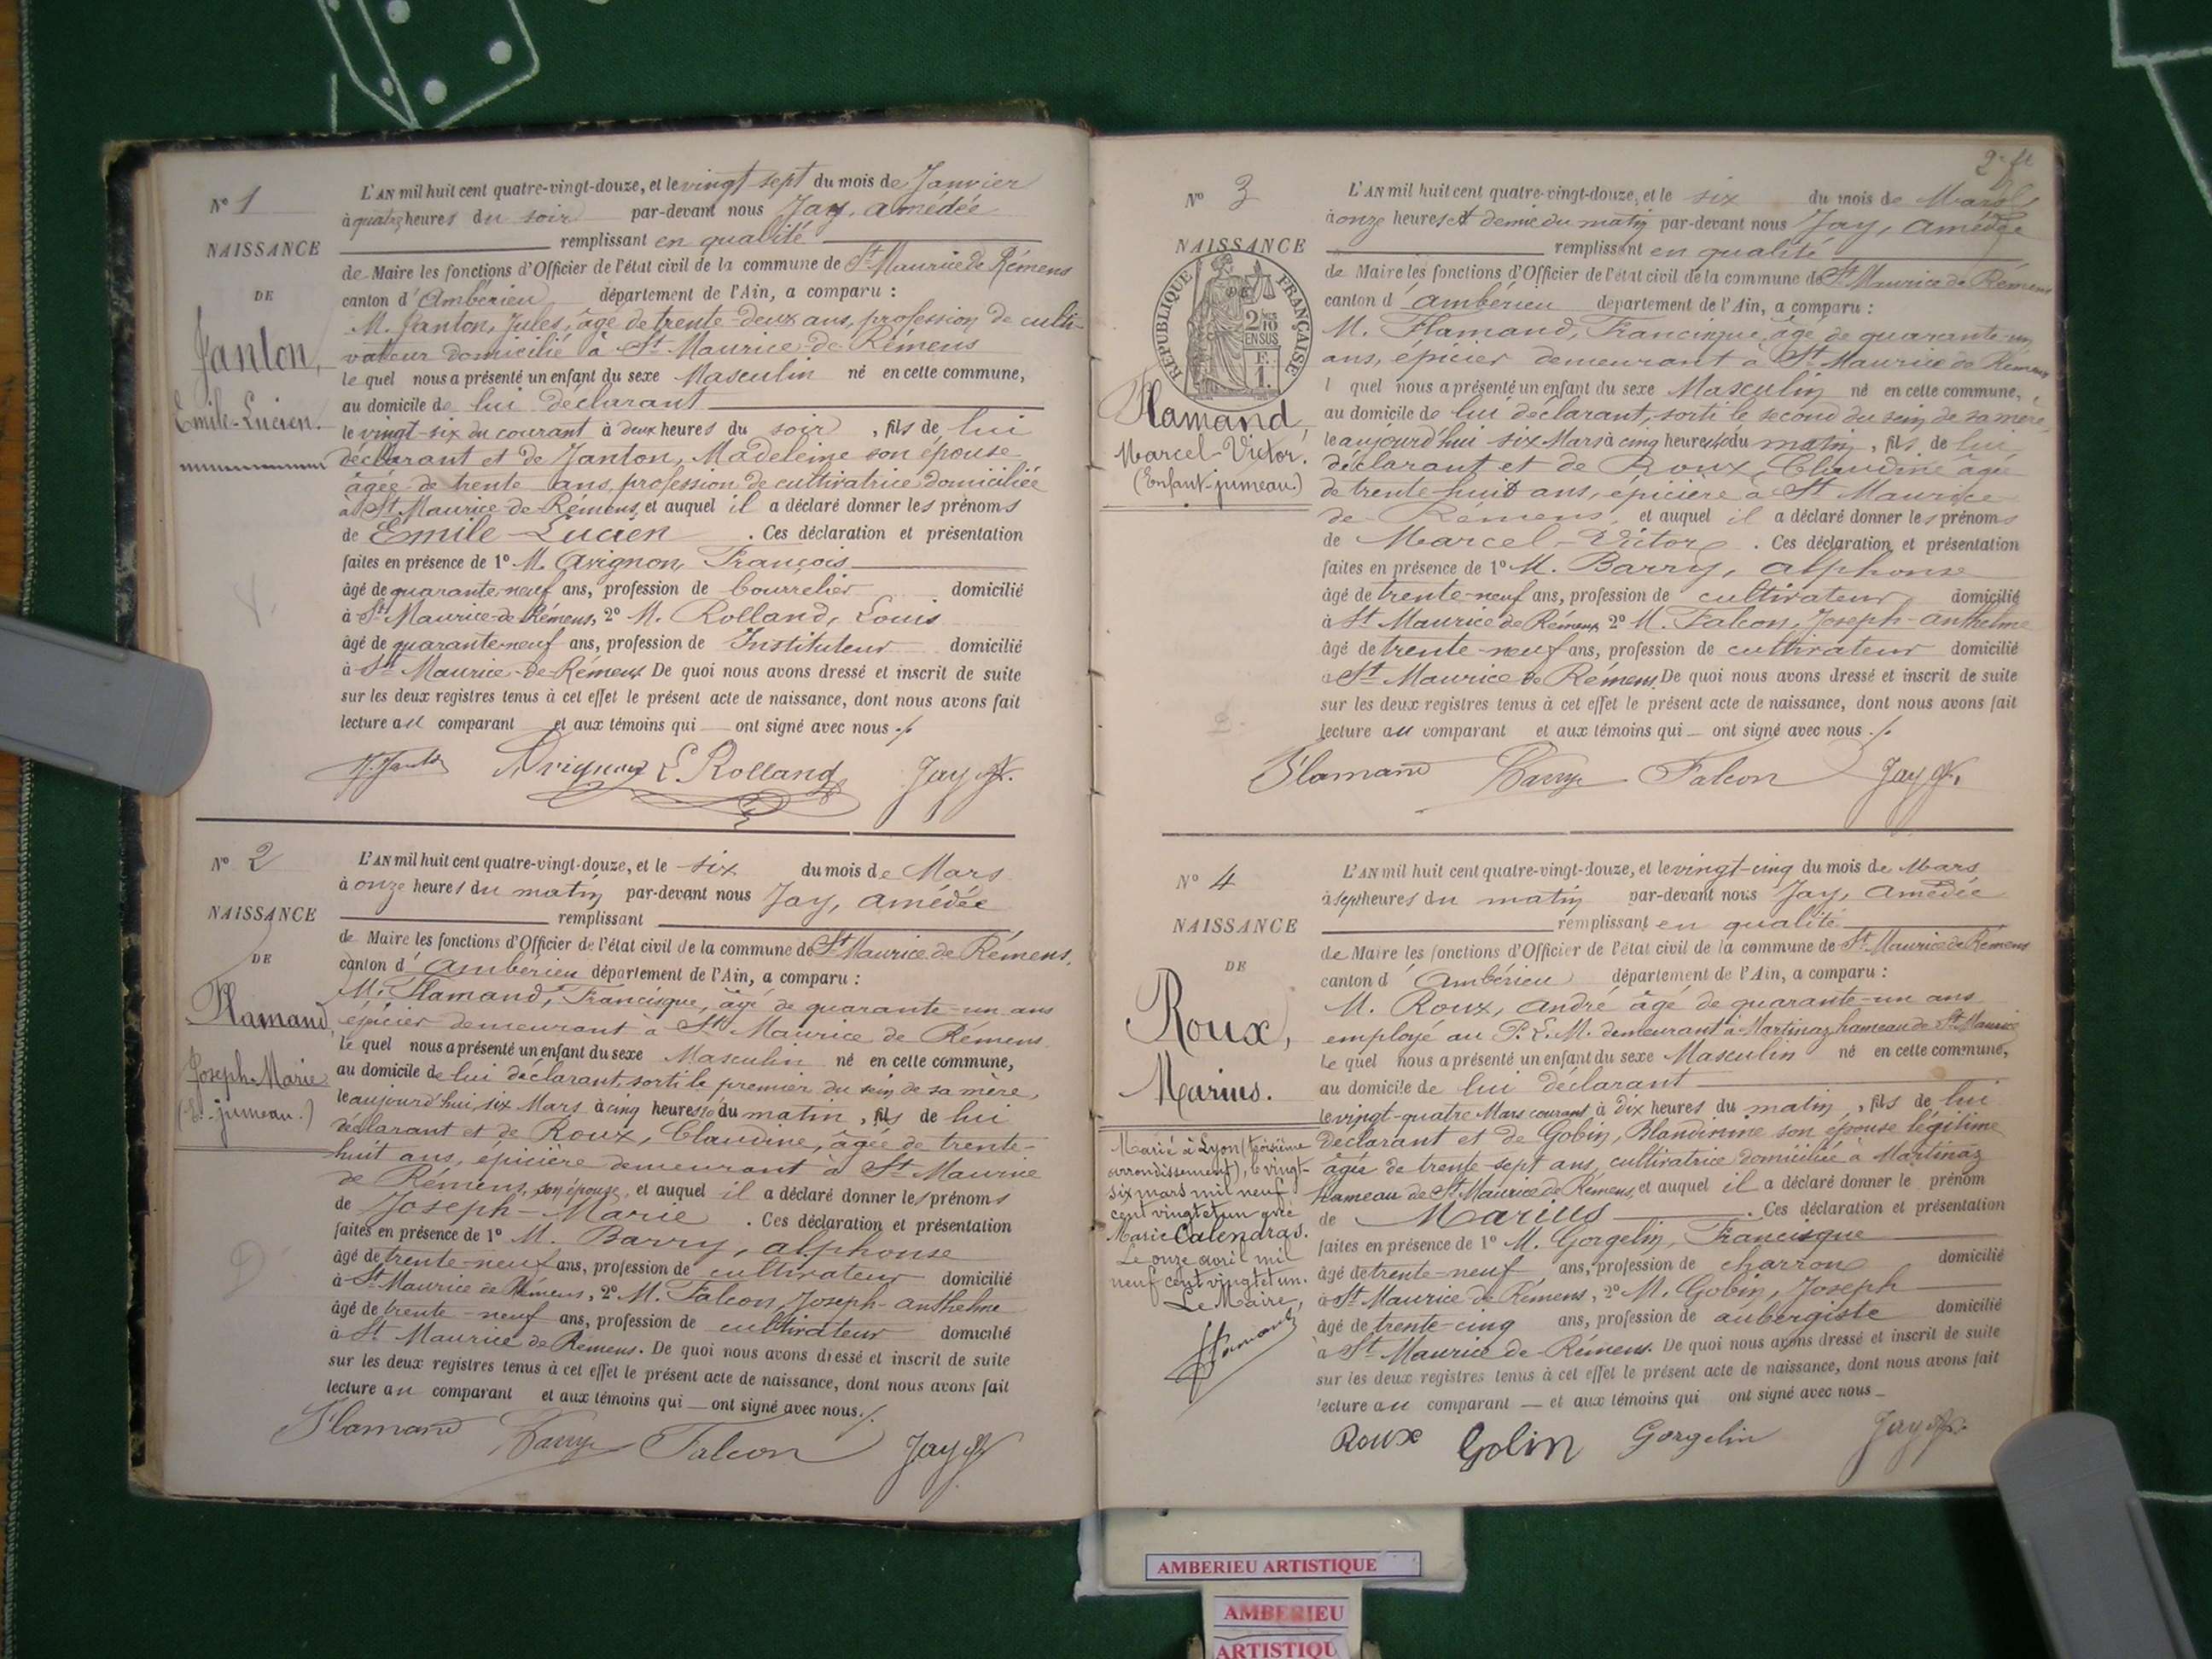 N° 1
NAISSANCE
DE
Janton,
Emile-Lucien.
L'AN mil huit cent quatre-vingt-douze, et le vingt-sept du mois de Janvier
à quatre heures du soir par-devant nous Jay, Amédée
remplissant en qualité
de Maire les fonctions d'Officier de l'état civil de la commune de St Maurice de Rémens
canton d'Ambérieu département de l'Ain, a comparu :
M. Janton, Jules, âgé de trente-deux ans, profession de culti-
vateur domicilié à St Maurice-de-Rémens
le quel nous a présenté un enfant du sexe Masculin né en cette commune,
au domicile de lui déclarant
le vingt-six du courant à deux heures du soir, fils de lui
déclarant et de Janton, Madeleine son épouse
âgée de trente ans, profession de cultivatrice domiciliée
à St Maurice-de-Rémens, et auquel il a déclaré donner les prénoms
de Emile-Lucien. Ces déclaration et présentation
faites en présence de 1° M. Avignon, François
âgé de quarante-neuf ans, profession de bourrelier domicilié
à St Maurice-de-Rémens, 2° M. Rolland, Louis
âgé de quarante-neuf ans, profession de Instituteur domicilié
à St Maurice-de-Rémens De quoi nous avons dressé et inscrit de suite
sur les deux registres tenus à cet effet le présent acte de naissance, dont nous avons fait
lecture au comparant et aux témoins qui ont signé avec nous ./.
Avignon L. Rolland Jay A.
N° 2
NAISSANCE
DE
Flamand,
Joseph-Marie
(E.-jumeau.)
L'AN mil huit cent quatre-vingt-douze, et le six du mois de Mars
à onze heures du matin par-devant nous Jay, Amédée
remplissant
de Maire les fonctions d'Officier de l'état civil de la commune de St Maurice de Rémens,
canton d'Ambérieu département de l'Ain, a comparu :
M. Flamand, Francisque, âgé de quarante-un ans
épicier demeurant à St Maurice de Rémens
le quel nous a présenté un enfant du sexe Masculin né en cette commune,
au domicile de lui déclarant, sorti le premier du sein de sa mère,
le aujourd'hui, six Mars à cinq heures du matin, fils de lui
déclarant et de Roux, Claudine, âgée de trente-
huit ans, épicière demeurant à St Maurice
de Rémens, son épouse, et auquel il a déclaré donner les prénoms
de Joseph-Marie. Ces déclaration et présentation
faites en présence de 1° M. Barry, Alphonse
âgé de trente-neuf ans, profession de cultivateur domicilié
à St Maurice de Rémens, 2° M. Falcon, Joseph-Anthelme
âgé de trente-neuf ans, profession de cultivateur domicilié
à St Maurice de Rémens. De quoi nous avons dressé et inscrit de suite
sur les deux registres tenus à cet effet le présent acte de naissance, dont nous avons fait
lecture au comparant et aux témoins qui ont signé avec nous ./.
Flamand Barry Falcon Jay A.
N° 3
NAISSANCE
DE
RÉPUBLIQUE FRANÇAISE
2/10 EN SUS
F. 1.
Flamand,
Marcel-Victor.
(Enfant-jumeau.)
L'AN mil huit cent quatre-vingt-douze, et le six du mois de Mars
à onze heures et demie du matin par-devant nous Jay, Amédée
remplissant en qualité
de Maire les fonctions d'Officier de l'état civil de la commune de St Maurice de Rémens
canton d'Ambérieu département de l'Ain, a comparu :
M. Flamand, Francisque, âgé de quarante-un
ans, épicier demeurant à St Maurice de Rémens
l quel nous a présenté un enfant du sexe Masculin né en cette commune,
au domicile de lui déclarant, sorti le second du sein de sa mère,
le aujourd'hui six Mars à cinq heures du matin, fils de lui
déclarant et de Roux, Claudine âgée
de trente-huit ans, épicière à St Maurice
de Rémens, et auquel il a déclaré donner les prénoms
de Marcel-Victor. Ces déclaration et présentation
faites en présence de 1° M. Barry, Alphonse
âgé de trente-neuf ans, profession de cultivateur domicilié
à St Maurice de Rémens 2° M. Falcon, Joseph-Anthelme
âgé de trente-neuf ans, profession de cultivateur domicilié
à St Maurice de Rémens. De quoi nous avons dressé et inscrit de suite
sur les deux registres tenus à cet effet le présent acte de naissance, dont nous avons fait
lecture au comparant et aux témoins qui ont signé avec nous ./.
Flamand Barry Falcon Jay A.
N° 4
NAISSANCE
DE
Roux,
Marius.
Marié à Lyon (troisième
arrondissement), le vingt-
six mars mil neuf
cent vingt et un avec
Marie Calendras.
Le onze avril mil
neuf cent vingt et un.
Le Maire,
L'AN mil huit cent quatre-vingt-douze, et le vingt-cinq du mois de Mars
à sept heures du matin par-devant nous Jay, Amédée
remplissant en qualité
de Maire les fonctions d'Officier de l'état civil de la commune de St Maurice de Rémens
canton d'Ambérieu département de l'Ain, a comparu :
M. Roux, André âgé de quarante-un ans
employé au P.L.M. demeurant à Martinaz hameau de St Maurice
le quel nous a présenté un enfant du sexe Masculin né en cette commune,
au domicile de lui déclarant
le vingt-quatre Mars courant à dix heures du matin, fils de lui
déclarant et de Gobin, Blandinine son épouse légitime
âgée de trente-sept ans, cultivatrice domiciliée à Martinaz
hameau de St Maurice de Rémens, et auquel il a déclaré donner le prénom
de Marius. Ces déclaration et présentation
faites en présence de 1° M. Gorgelin, Francisque
âgé de trente-neuf ans, profession de charron domicilié
à St Maurice de Rémens, 2° M. Gobin, Joseph
âgé de trente-cinq ans, profession de aubergiste domicilié
à St Maurice de Rémens. De quoi nous avons dressé et inscrit de suite
sur les deux registres tenus à cet effet le présent acte de naissance, dont nous avons fait
lecture au comparant et aux témoins qui ont signé avec nous
Roux Gobin Gorgelin Jay A.
AMBERIEU ARTISTIQUE
AMBERIEU
ARTISTIQU